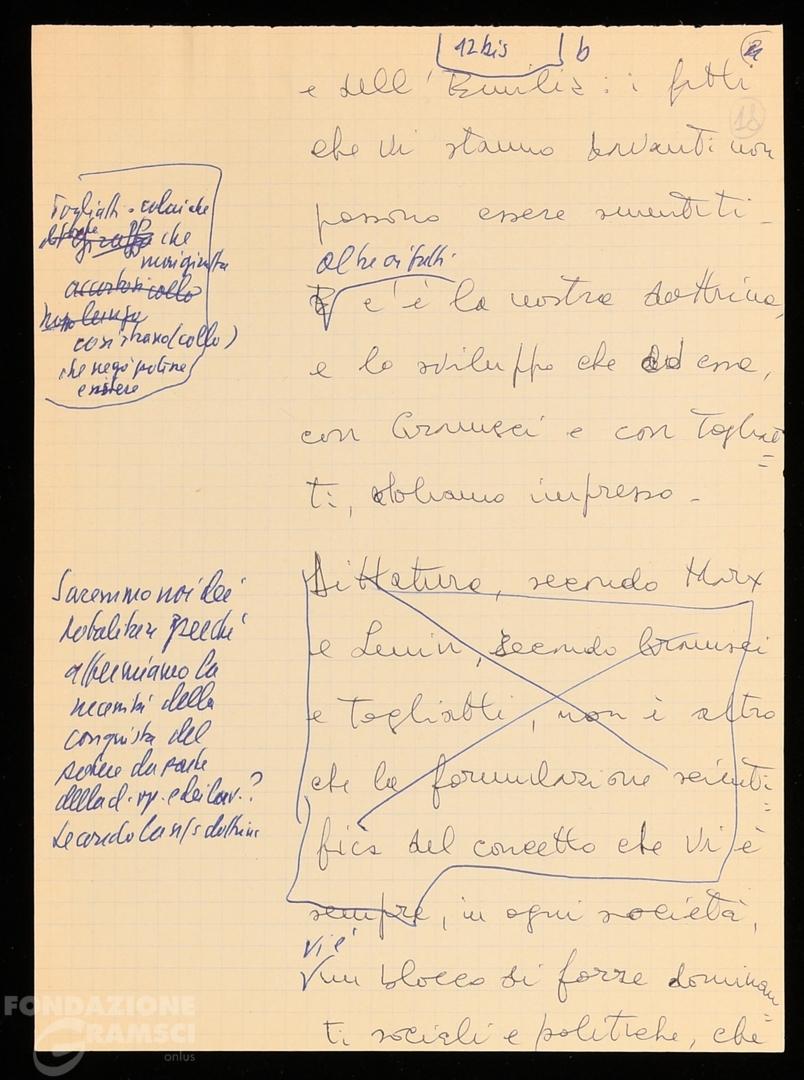 12 bis b
18
e dell'Emilia: i fatti
che vi stanno davanti non
possono essere smentiti -
oltre ai fatti
c'è la nostra dottrina,
e lo sviluppo che ad essa,
con Gramsci e con Togliat=
ti, abbiamo impresso -
Dittatura, secondo Marx
e Lenin, secondo Gramsci
e Togliatti, non è altro
che la formulazione scienti=
fica del concetto che vi è
sempre, in ogni società,
vi è
un blocco di forze dominan=
ti sociali e politiche, che
Togliatti - colui che
giraffa che
accortosi collo
lungo
così strano (collo)
che negò potesse
esistere
Saremmo noi dei
totalitari perché
affermiamo la
necessità della
conquista del
potere da parte
della cl. op. e dei lav.?
Secondo la n/s dottrina
FONDAZIONE
GRAMSCI
onlus